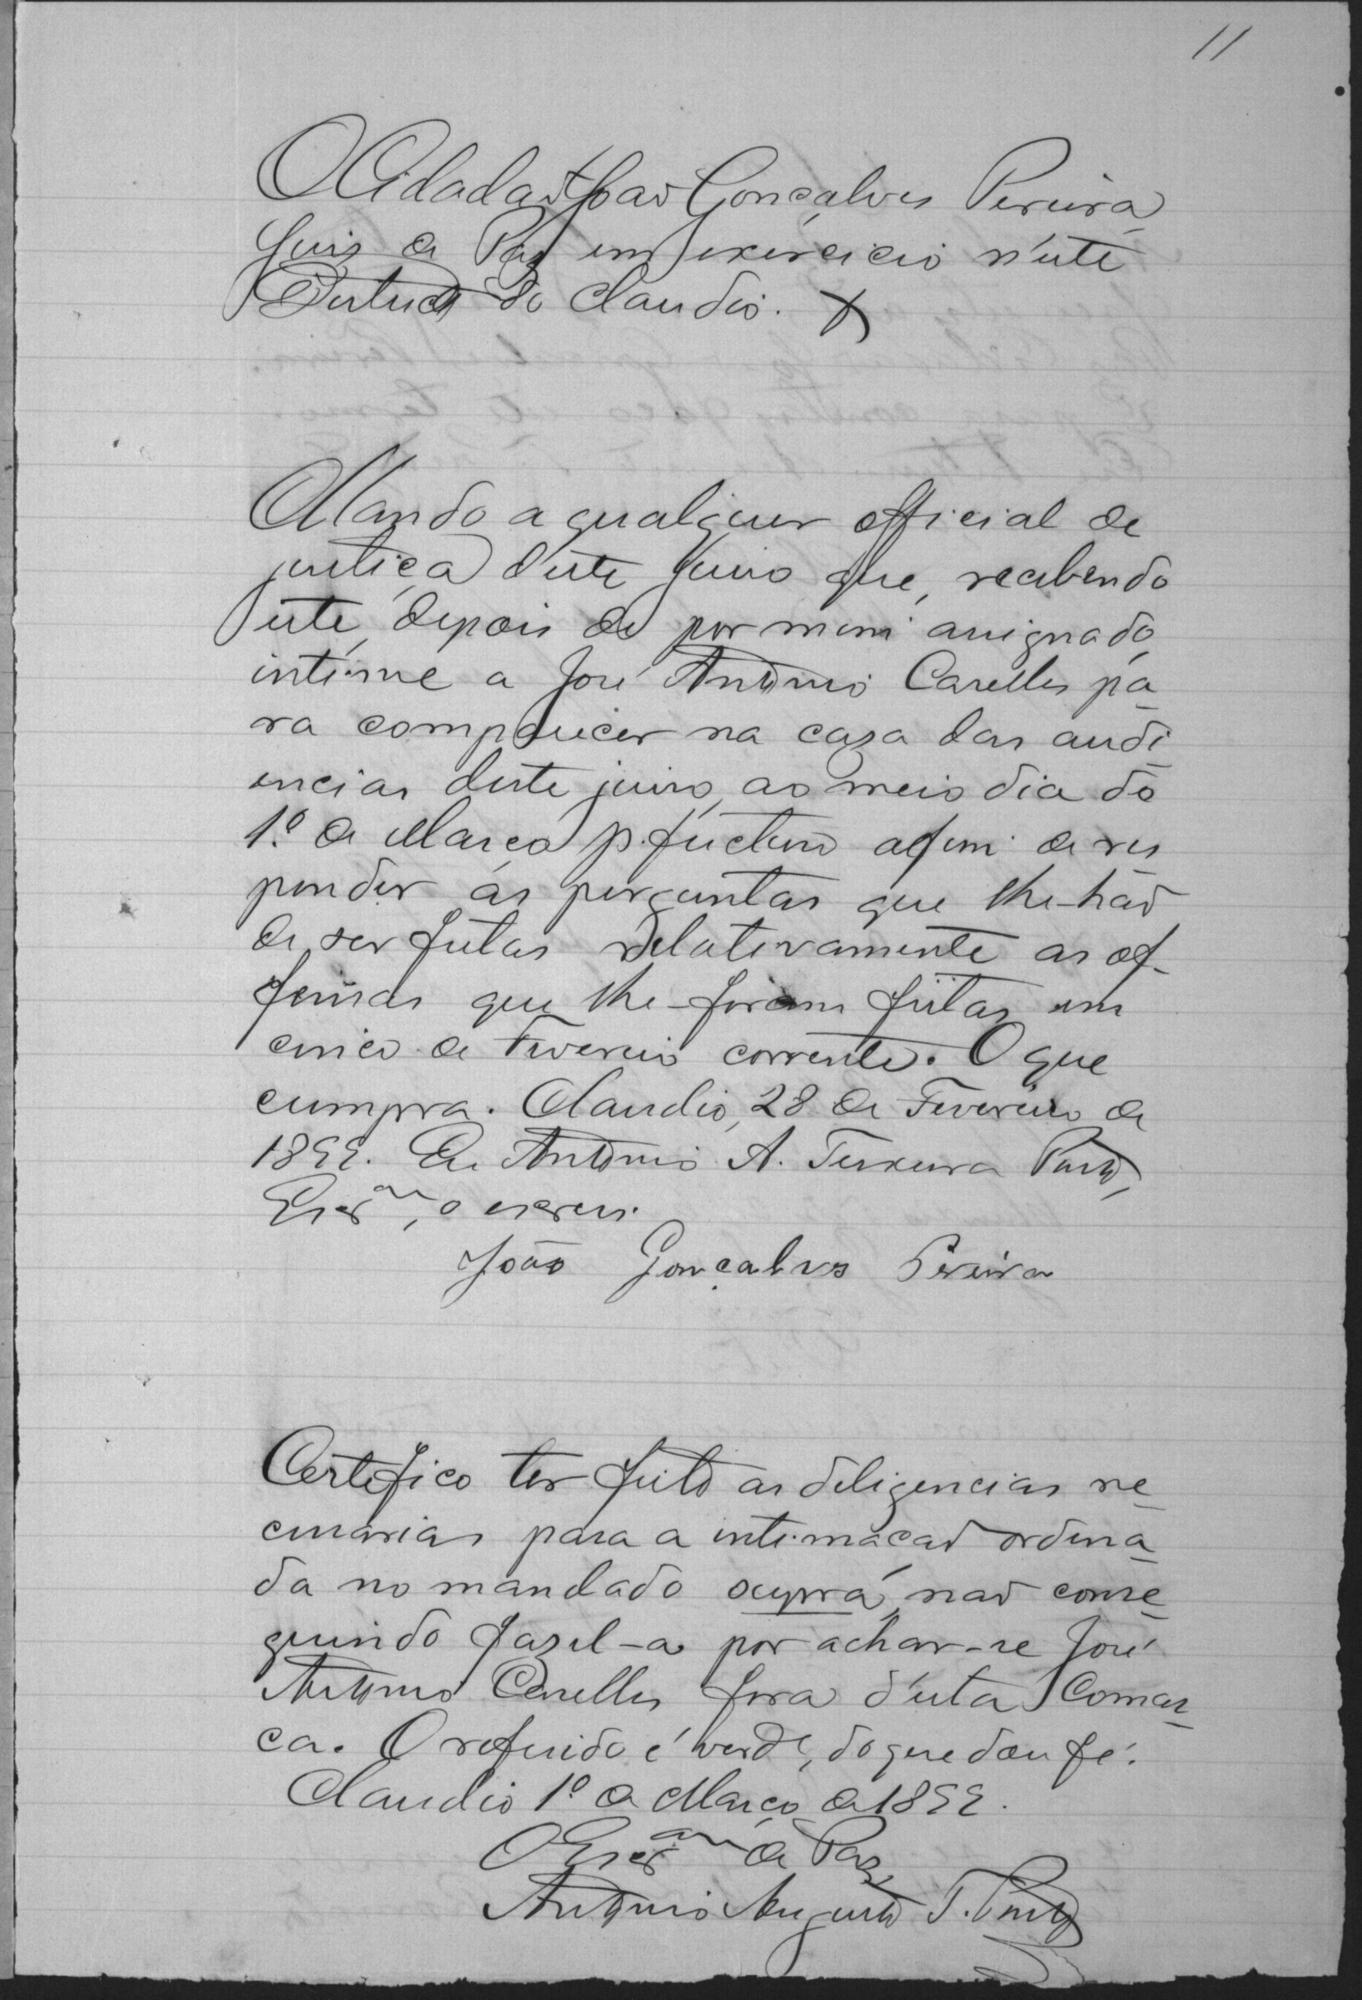 11
O Cidadão João Gonçalves Pereira
Juis de Paz em exercicio n'este
Districto do Claudio.
Mando a qualquer official de
justiça deste Juizo que, recebendo
este, depois de por mim assignado,
intime a José Antonio Carelles pa-
ra comparecer na caza das audi-
encias deste juizo, ao meio dia do
1.º de Março p. futuro afim de res
ponder ás perguntas que lhe-hão
de ser feitas relativamente as of-
fensas que lhe-foram feitas em
cinco de Fevereiro corrente. O que
cumpra. Claudio, 28 de Fevereiro de
1899. Eu Antonio A. Teixeira Porto,
Escr.am, o escrevi.
João Gonçalves Pereira
Certefico ter feito as deligencias ne-
cessarias para a intimação ordena-
da no mandado supra, não conse-
guindo fazel-a por achar-se José
Antonio Carelles fora d'esta Comar-
ca. O referido é verde, do que dou fé.
Claudio 1º de Março de 1899.
O Escr.am de Paz,
Antonio Augusto T. Porto